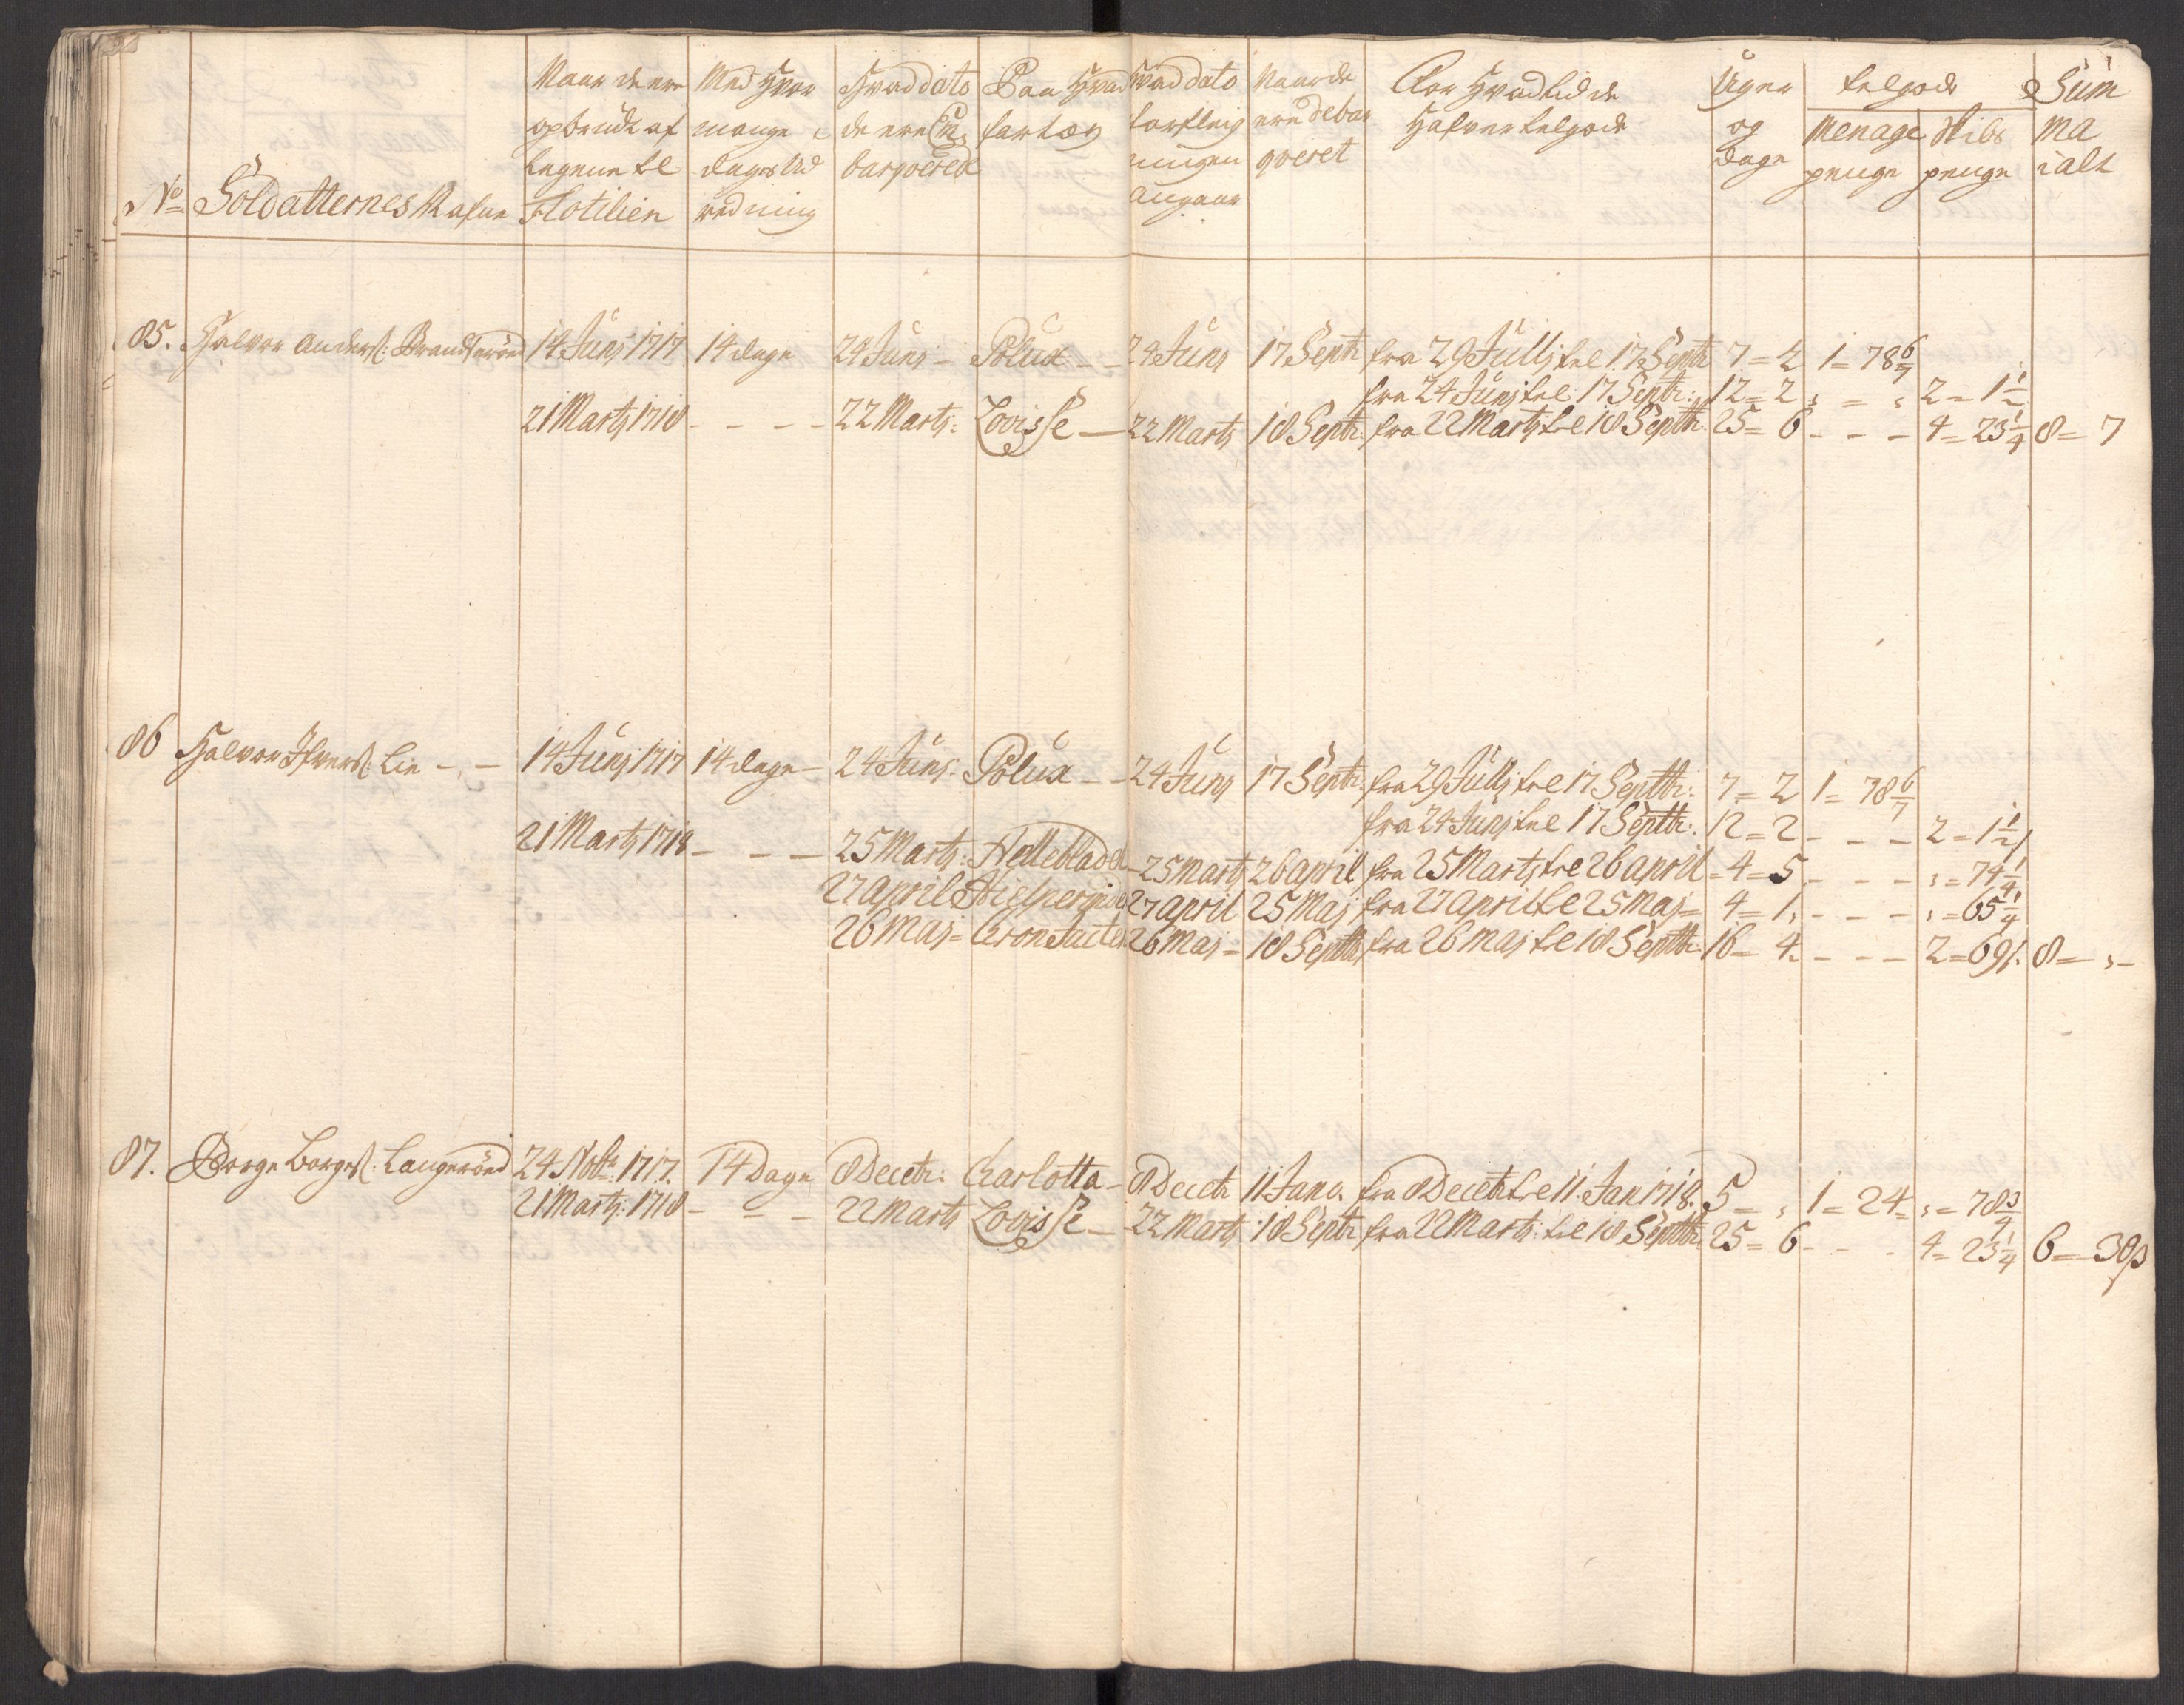 No Soldatternes Nafne
Naar de ere opbrudt af Legene til Flotilien
Med Hvor mange dages Und redning
Hvad dato de ere Em barqveret
Paa Hvad fartøy
Hvad dato forpleig ningen Angaar
Naar de ere debar qveret
For Hvad tid de Hafver tilgode
Uger og Dage
tilgode
Menage penge
Skibs penge
Sum ma ialt
85. Halvor Anders: Brandserød 14 Junj 1717 14 dage 24 Junj - Polux - - 24 Junj 17 Septr fra 29 Jullj til 17 Septr 7 = 2 1 = 78 6/7
fra 24 Junj til 17 Septr: 12 = 2 , = , 2 = 1 1/2
21 Martj 1718 - - - - 22 Martj: Lovisse - 22 Martj 18 Septr. fra 22 Martj til 18 Septtr. 25 = 6 - - - 4 = 23 1/4 8 = 7
86 Halvor Ifvers: Lie - , - 14 Junj 1717 14 dage - 24 Junj. Polux - - 24 Junj 17 Septr. fra 29 Jullj til 17 Septtr: 7 = 2 1 = 78 6/7
fra 24 Junj til 17 Septtr: 12 = 2 - - - 2 = 1 1/2
21 Martj 1718 - - - 25 Martj: Nelleblade - 25 Martj 26 april fra 25 Martj til 26 april = 4 = 5 - - - , = 74 1/4
27 April 27 april 25 Maj fra 27 april til 25 Maj = 4 = 1 , - - - , = 65 1/4
26 Maj = 26 Maj = 18 Septtr fra 26 Maj til 18 Septtr: 16 = 4 . - - - 2 = 69 8 = , -
87. Borge Borges: Langerød 24 Nobr: 1717. 14 Dage 8 Decetr: Charlotta - 8 Decetr 11 Janv. fra 8 Decetr til 11. Jan 1718. 5 = , 1 = 24 = , = 78 3/4
21 Martj: 1718 - = - 22 Martj Lovisse - 22 Martj 18 Septr fra 22 Martj: til 18 Septtr: 25 = 6 - - - 4 = 23 1/4 6 = 30 ß